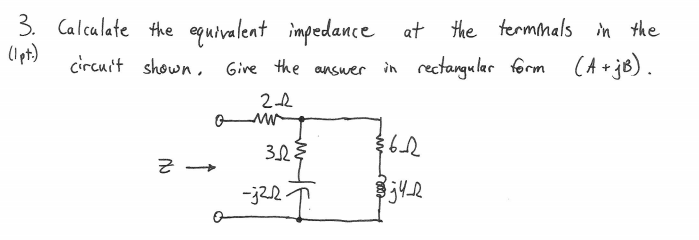 3. Calculate the equivalent impedance at the terminals in the
(1 pt.) circuit shown. Give the answer in rectangular form (A + jB).
2Ω
3Ω 6Ω
Z →
-j2Ω j4Ω